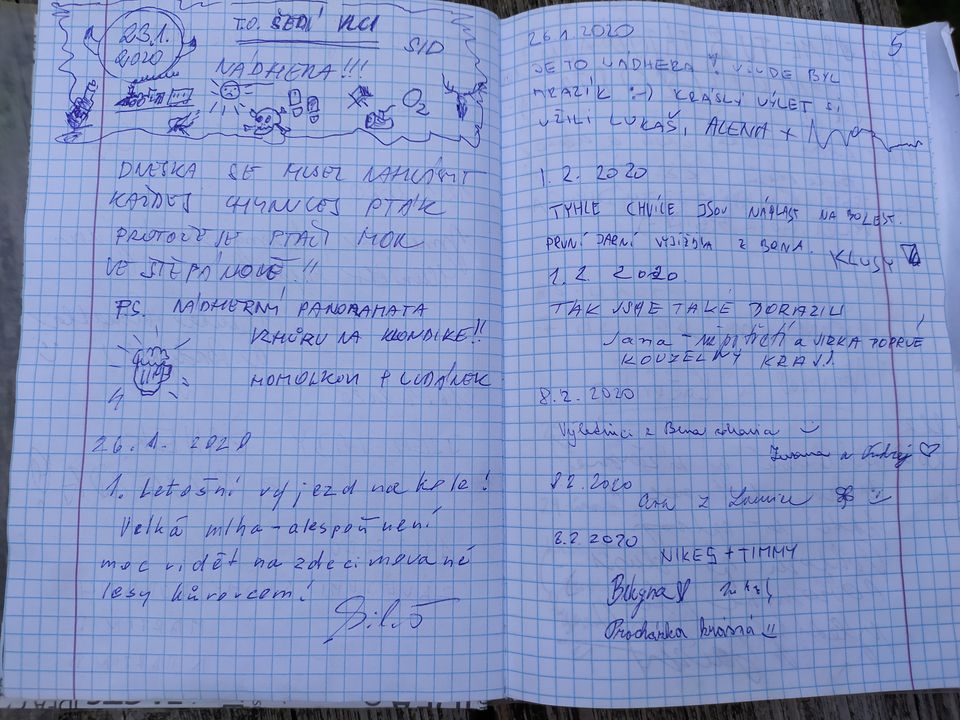 23.1.
2020
T.O. ŠEDÍ VLCI
SID
NÁDHERA!!!
O2
DNESKA SE MUSEL NAHLÁSIT
KAŽDEJ CHYCENEJ PTÁK
PROTOŽE JE PTAČÍ ROK
VE ŠTĚPÁNOVĚ!!
PS. NÁDHERNÍ PANORAMATA
VZHŮRU NA KLONDIKE!!
HOMOLKOVI + LUDÁNEK
26.1. 2020
1. Letošní výjezd na kole!
Velká mlha - alespoň není
moc vidět na zdecimované
lesy kůrovcem!
5
26.1.2020
JE TO NÁDHERA! VŠUDE BYL
MRAZÍK :-) KRÁSNÝ VÝLET SI
UŽILI LUKÁŠ, ALENA +
1. 2. 2020
TYHLE CHVÍLE JSOU NÁPLAST NA BOLEST.
PRVNÍ JARNÍ VYJÍŽĎKA Z BRNA.
KLUSY
1. 2. 2020
TAK JSME TAKÉ DORAZILI
Jana - a JIRKA POPRVÉ
KOUZELNÝ KRAJ!
8.2. 2020
Výletníci z Brna
Zuzana a Ondřej
8.2.2020
z Lomnice
8.2.2020
NIKES + TIMMY
Procházka krásná !!